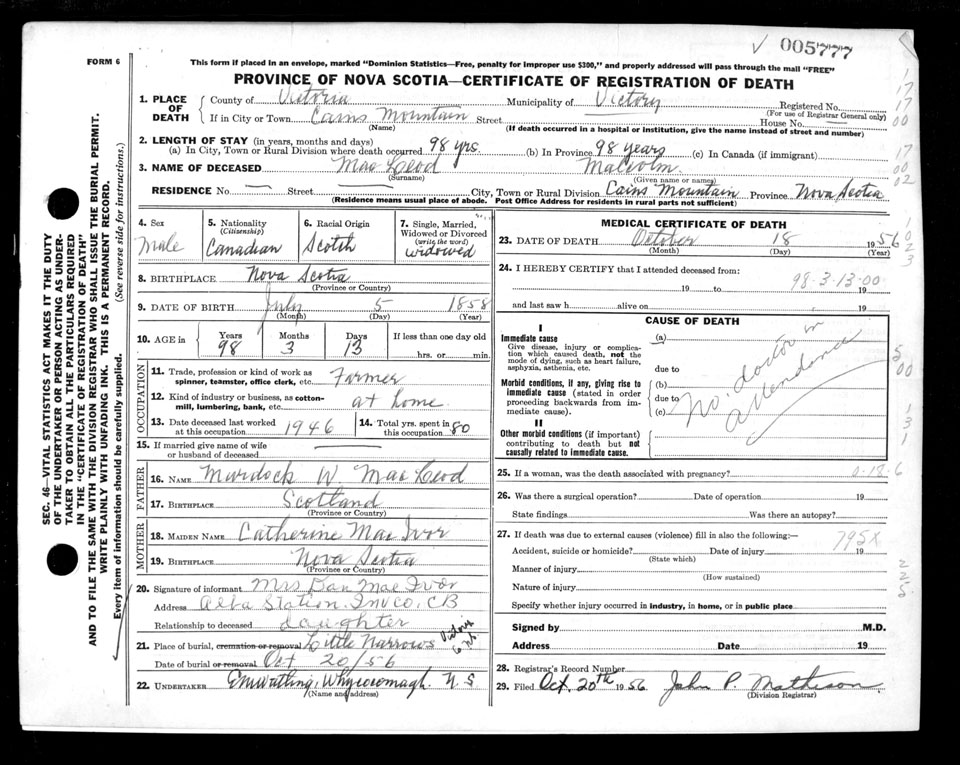 ✓ 005777
FORM 6
This form if placed in an envelope, marked "Dominion Statistics—Free, penalty for improper use $300," and properly addressed will pass through the mail "FREE"
PROVINCE OF NOVA SCOTIA—CERTIFICATE OF REGISTRATION OF DEATH
SEC. 46—VITAL STATISTICS ACT MAKES IT THE DUTY
OF THE UNDERTAKER OR PERSON ACTING AS UNDER-
TAKER TO OBTAIN ALL THE PARTICULARS REQUIRED
IN THE "CERTIFICATE OF REGISTRATION OF DEATH"
AND TO FILE THE SAME WITH THE DIVISION REGISTRAR WHO SHALL ISSUE THE BURIAL PERMIT.
WRITE PLAINLY WITH UNFADING INK. THIS IS A PERMANENT RECORD.
Every item of information should be carefully supplied. (See reverse side for instructions.)
1. PLACE OF DEATH { County of Victoria Municipality of Victory Registered No.
(For use of Registrar General only)
If in City or Town Cains Mountain Street House No. —
(Name) (If death occurred in a hospital or institution, give the name instead of street and number)
2. LENGTH OF STAY (in years, months and days)
(a) In City, Town or Rural Division where death occurred 98 yrs. (b) In Province 98 years (c) In Canada (if immigrant)
3. NAME OF DECEASED Mac Leod Malcolm.
(Surname) (Given name or names)
RESIDENCE No. — Street — City, Town or Rural Division Cains Mountain Province Nova Scotia
(Residence means usual place of abode. Post Office Address for residents in rural parts not sufficient)
4. Sex
Male
5. Nationality
(Citizenship)
Canadian
6. Racial Origin
Scotch
7. Single, Married,
Widowed or Divorced
(write the word)
widowed
8. BIRTHPLACE Nova Scotia
(Province or Country)
9. DATE OF BIRTH July 5 1858
(Month) (Day) (Year)
10. AGE in Years Months Days If less than one day old
98 3 13 hrs. or min.
OCCUPATION
11. Trade, profession or kind of work as
spinner, teamster, office clerk, etc. Farmer
12. Kind of industry or business, as cotton-
mill, lumbering, bank, etc. at home.
13. Date deceased last worked
at this occupation 1946
14. Total yrs. spent in
this occupation 80
15. If married give name of wife
or husband of deceased —
FATHER
16. NAME Murdock W. Mac Leod
17. BIRTHPLACE Scotland
(Province or Country)
MOTHER
18. MAIDEN NAME Catherine Mac Ivor
19. BIRTHPLACE Nova Scotia
(Province or Country)
20. Signature of informant Mrs Dan Mac Ivor
Address Alba Station. Inv co. CB
Relationship to deceased daughter
21. Place of burial, cremation or removal Little Narrows Victoria Co
Date of burial or removal Oct 20/56
22. UNDERTAKER Whycocomagh. N S
(Name and address)
MEDICAL CERTIFICATE OF DEATH
23. DATE OF DEATH October 18 1956
(Month) (Day) (Year)
24. I HEREBY CERTIFY that I attended deceased from:
98-3-13-00
19 to 19
and last saw h alive on 19
CAUSE OF DEATH
I
Immediate cause
Give disease, injury or complica-
tion which caused death, not the
mode of dying, such as heart failure,
asphyxia, asthenia, etc.
(a)
due to
Morbid conditions, if any, giving rise to
immediate cause (stated in order
proceeding backwards from im-
mediate cause).
(b)
due to
(c)
No. doctor in
attendance
II
Other morbid conditions (if important)
contributing to death but not
causally related to immediate cause.
25. If a woman, was the death associated with pregnancy? 0-18-6
26. Was there a surgical operation? Date of operation 19
State findings Was there an autopsy?
27. If death was due to external causes (violence) fill in also the following:— 795X
Accident, suicide or homicide? Date of injury 19
(State which)
Manner of injury
(How sustained)
Nature of injury
Specify whether injury occurred in industry, in home, or in public place
Signed by M.D.
Address Date 19
28. Registrar's Record Number
29. Filed Oct. 20th 1956 John P. Matheson
(Division Registrar)